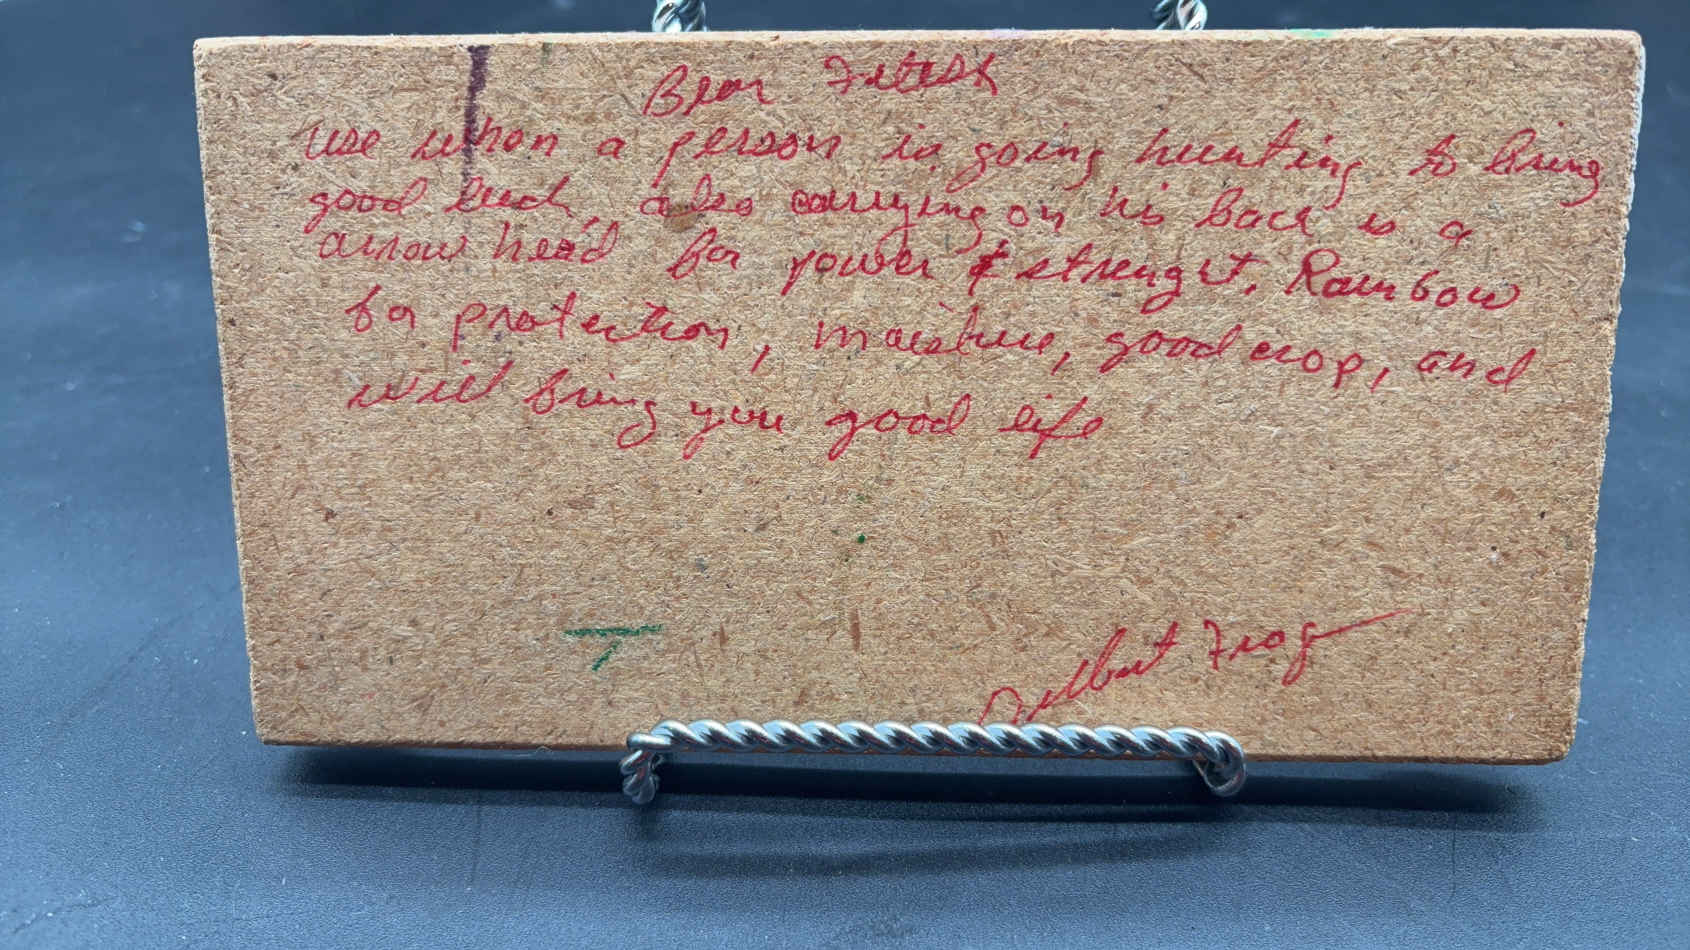 Bear Fetish
use when a person is going hunting to bring
good luck, also carrying on his back is a
arrow head for power & strenght. Rainbow
for protection, moisture, good crop, and
will bring you good life
Frog